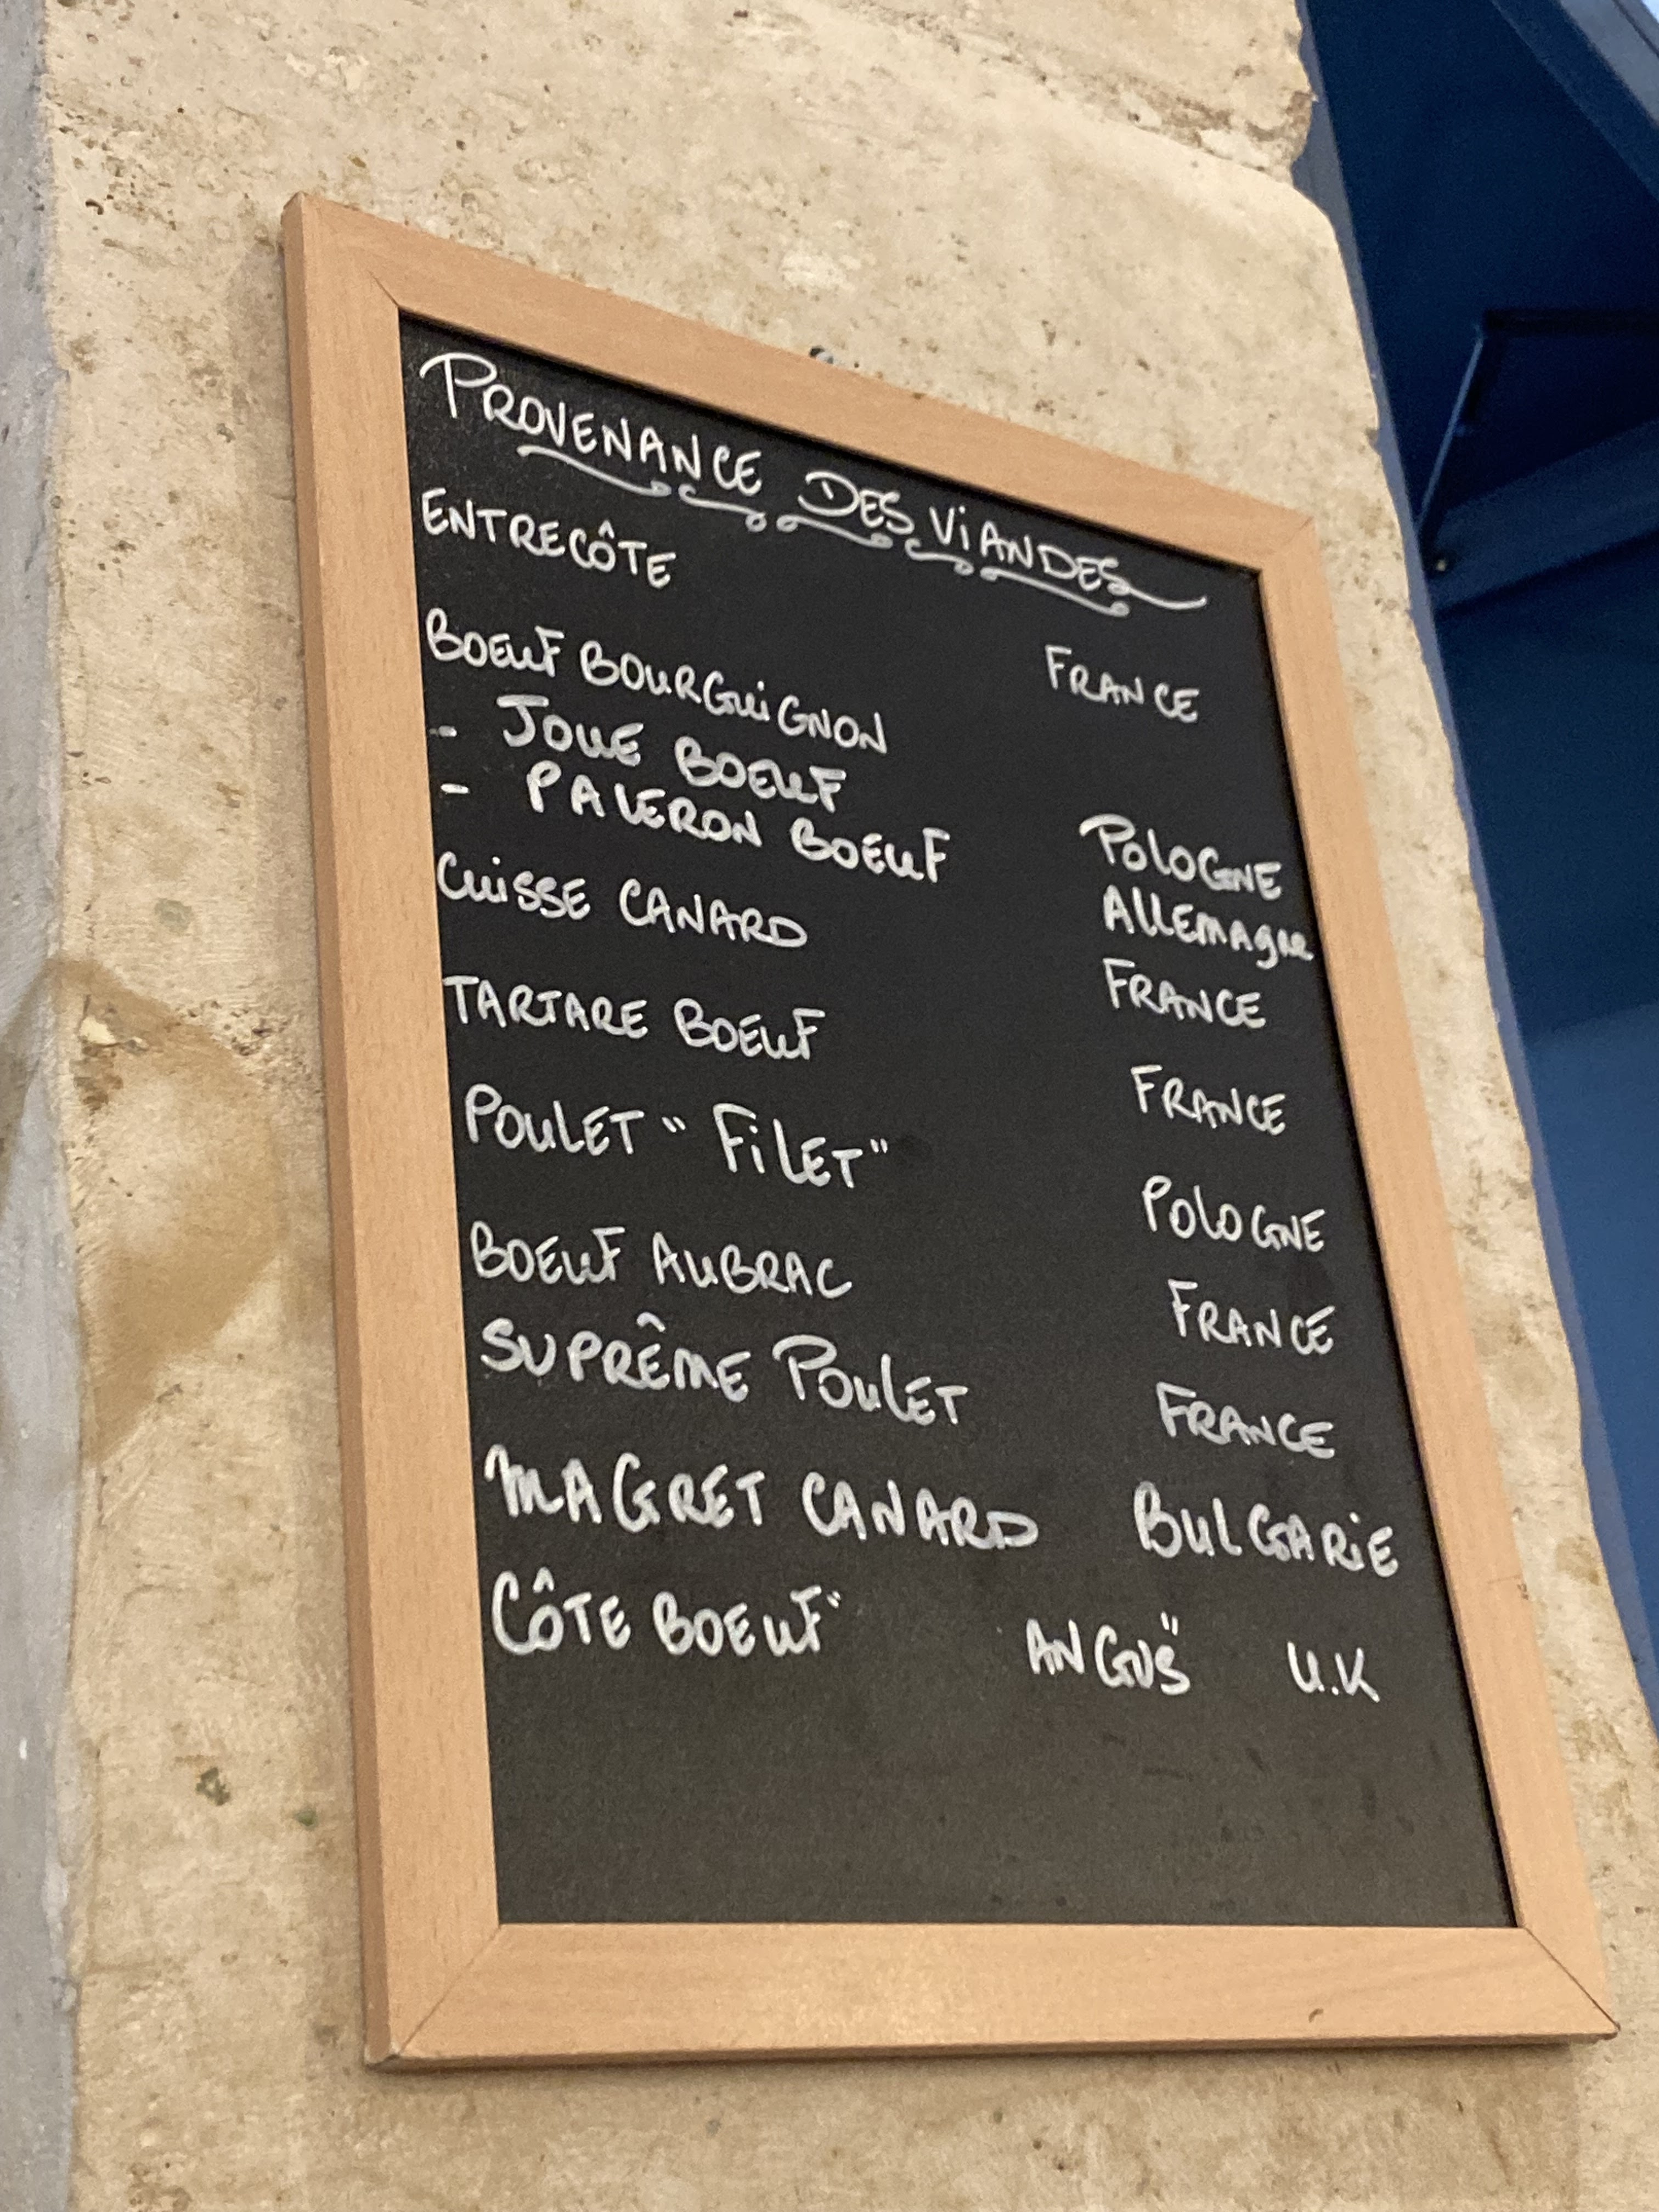 PROVENANCE DES VIANDES
ENTRECÔTE FRANCE
BOEUF BOURGUIGNON
- JOUE BOEUF POLOGNE
- PALERON BOEUF ALLEMAGNE
CUISSE CANARD FRANCE
TARTARE BOEUF FRANCE
POULET "FILET" POLOGNE
BOEUF AUBRAC FRANCE
SUPRÊME POULET FRANCE
MAGRET CANARD BULGARIE
CÔTE BOEUF " ANGUS" U.K